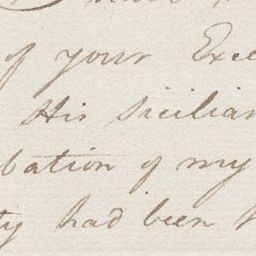 of your Exce
His Sicilian
bation of my
ty had been